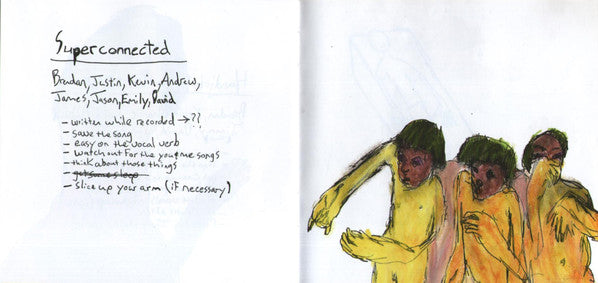 Superconnected
Brendan, Justin, Kevin, Andrew,
James, Jason, Emily, David
- written while recorded → ??
- save the song
- easy on the vocal verb
- watch out for the you + me songs
- think about those things
- get some sleep
- slice up your arm (if necessary)